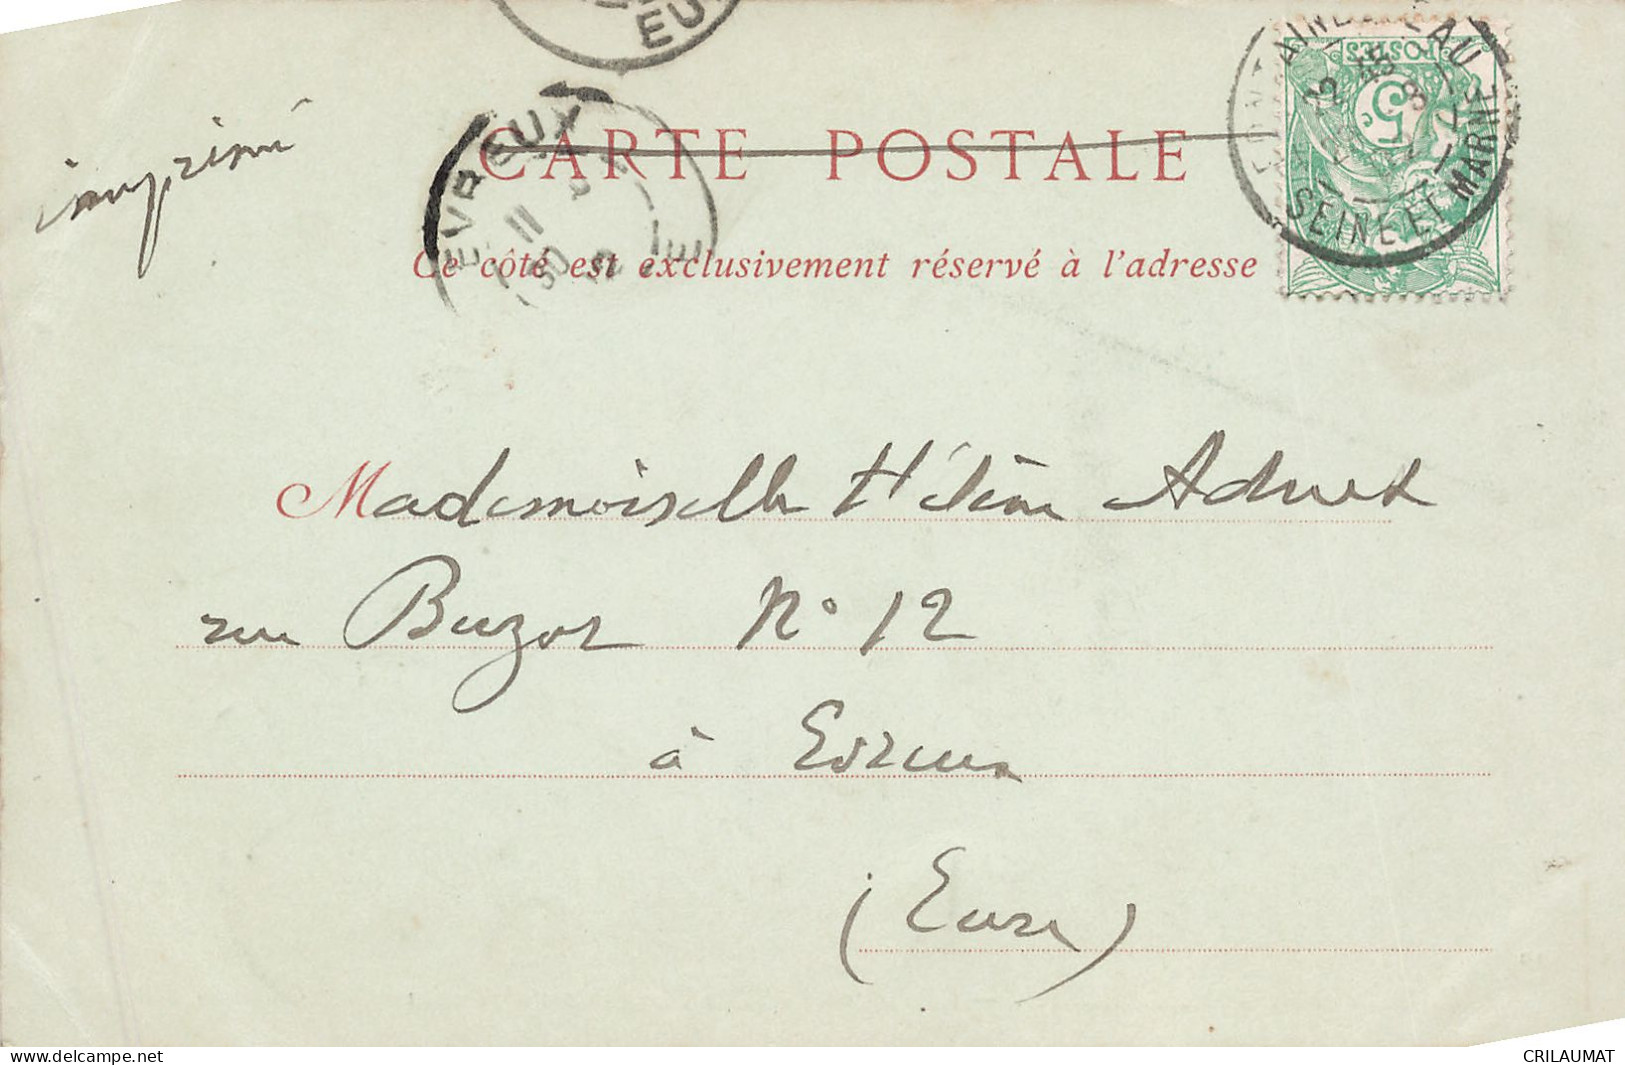 EU
imprimé
EVREUX
11
CARTE POSTALE
POSTES
5c
FONTAINEBLEAU
SEINE ET MARNE
Ce côté est exclusivement réservé à l'adresse
Mademoiselle Hélène Adnet
rue Buzot N° 12
à Evreux
(Eure)
www.delcampe.net
CRILAUMAT